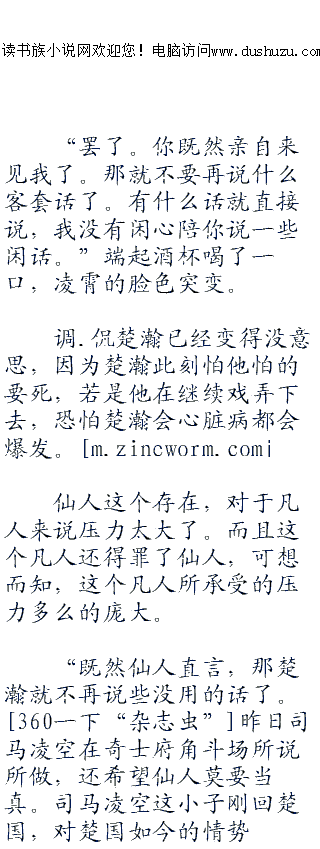 读书族小说网欢迎您！电脑访问www.dushuzu.com
“罢了。你既然亲自来
见我了。那就不要再说什么
客套话了。有什么话就直接
说，我没有闲心陪你说一些
闲话。”端起酒杯喝了一
口，凌霄的脸色突变。
调.侃楚瀚已经变得没意
思，因为楚瀚此刻怕他怕的
要死，若是他在继续戏弄下
去，恐怕楚瀚会心脏病都会
爆发。[m.zincworm.com]
仙人这个存在，对于凡
人来说压力太大了。而且这
个凡人还得罪了仙人，可想
而知，这个凡人所承受的压
力多么的庞大。
“既然仙人直言，那楚
瀚就不再说些没用的话了。
[360一下“杂志虫”]昨日司
马凌空在奇士府角斗场所说
所做，还希望仙人莫要当
真。司马凌空这小子刚回楚
国，对楚国如今的情势